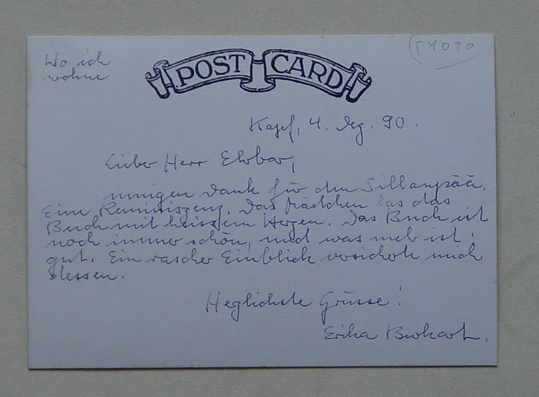 Wo ich
wohne
POST CARD
Kapf, 4. Dez. 90.
Lieber Herr Ehrbar,
innigen Dank für den Sillanpää.
Eine Reminiszenz. Das Mädchen las das
Buch mit heissem Herzen. Das Buch ist
noch immer schön, und was mehr ist,
gut. Ein rascher Einblick versicherte mich
dessen.
Herzlichste Grüsse!
Erika Burkart.